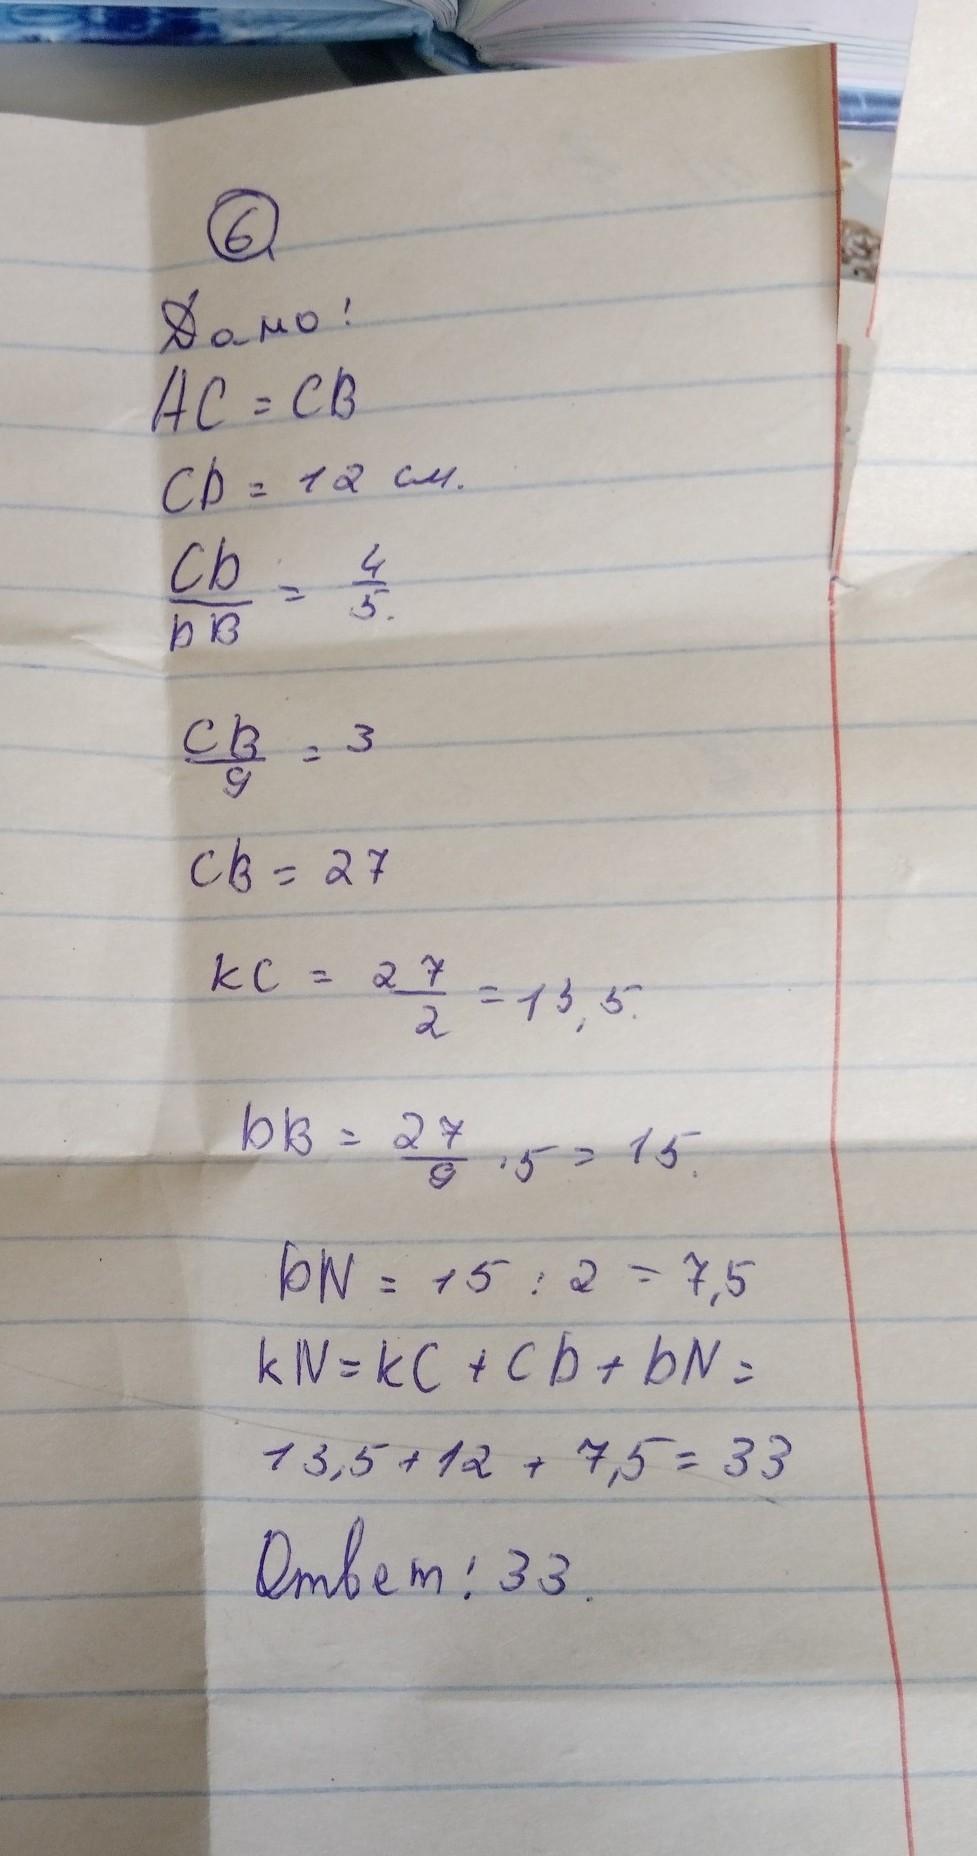 6.
Дано:
AC = CB
CD = 12 см.
CD/DB = 4/5.
CB/9 = 3
CB = 27
KC = 27/2 = 13,5.
DB = 27/9 · 5 = 15.
DN = 15 : 2 = 7,5
KN = KC + CD + DN =
13,5 + 12 + 7,5 = 33
Ответ: 33.